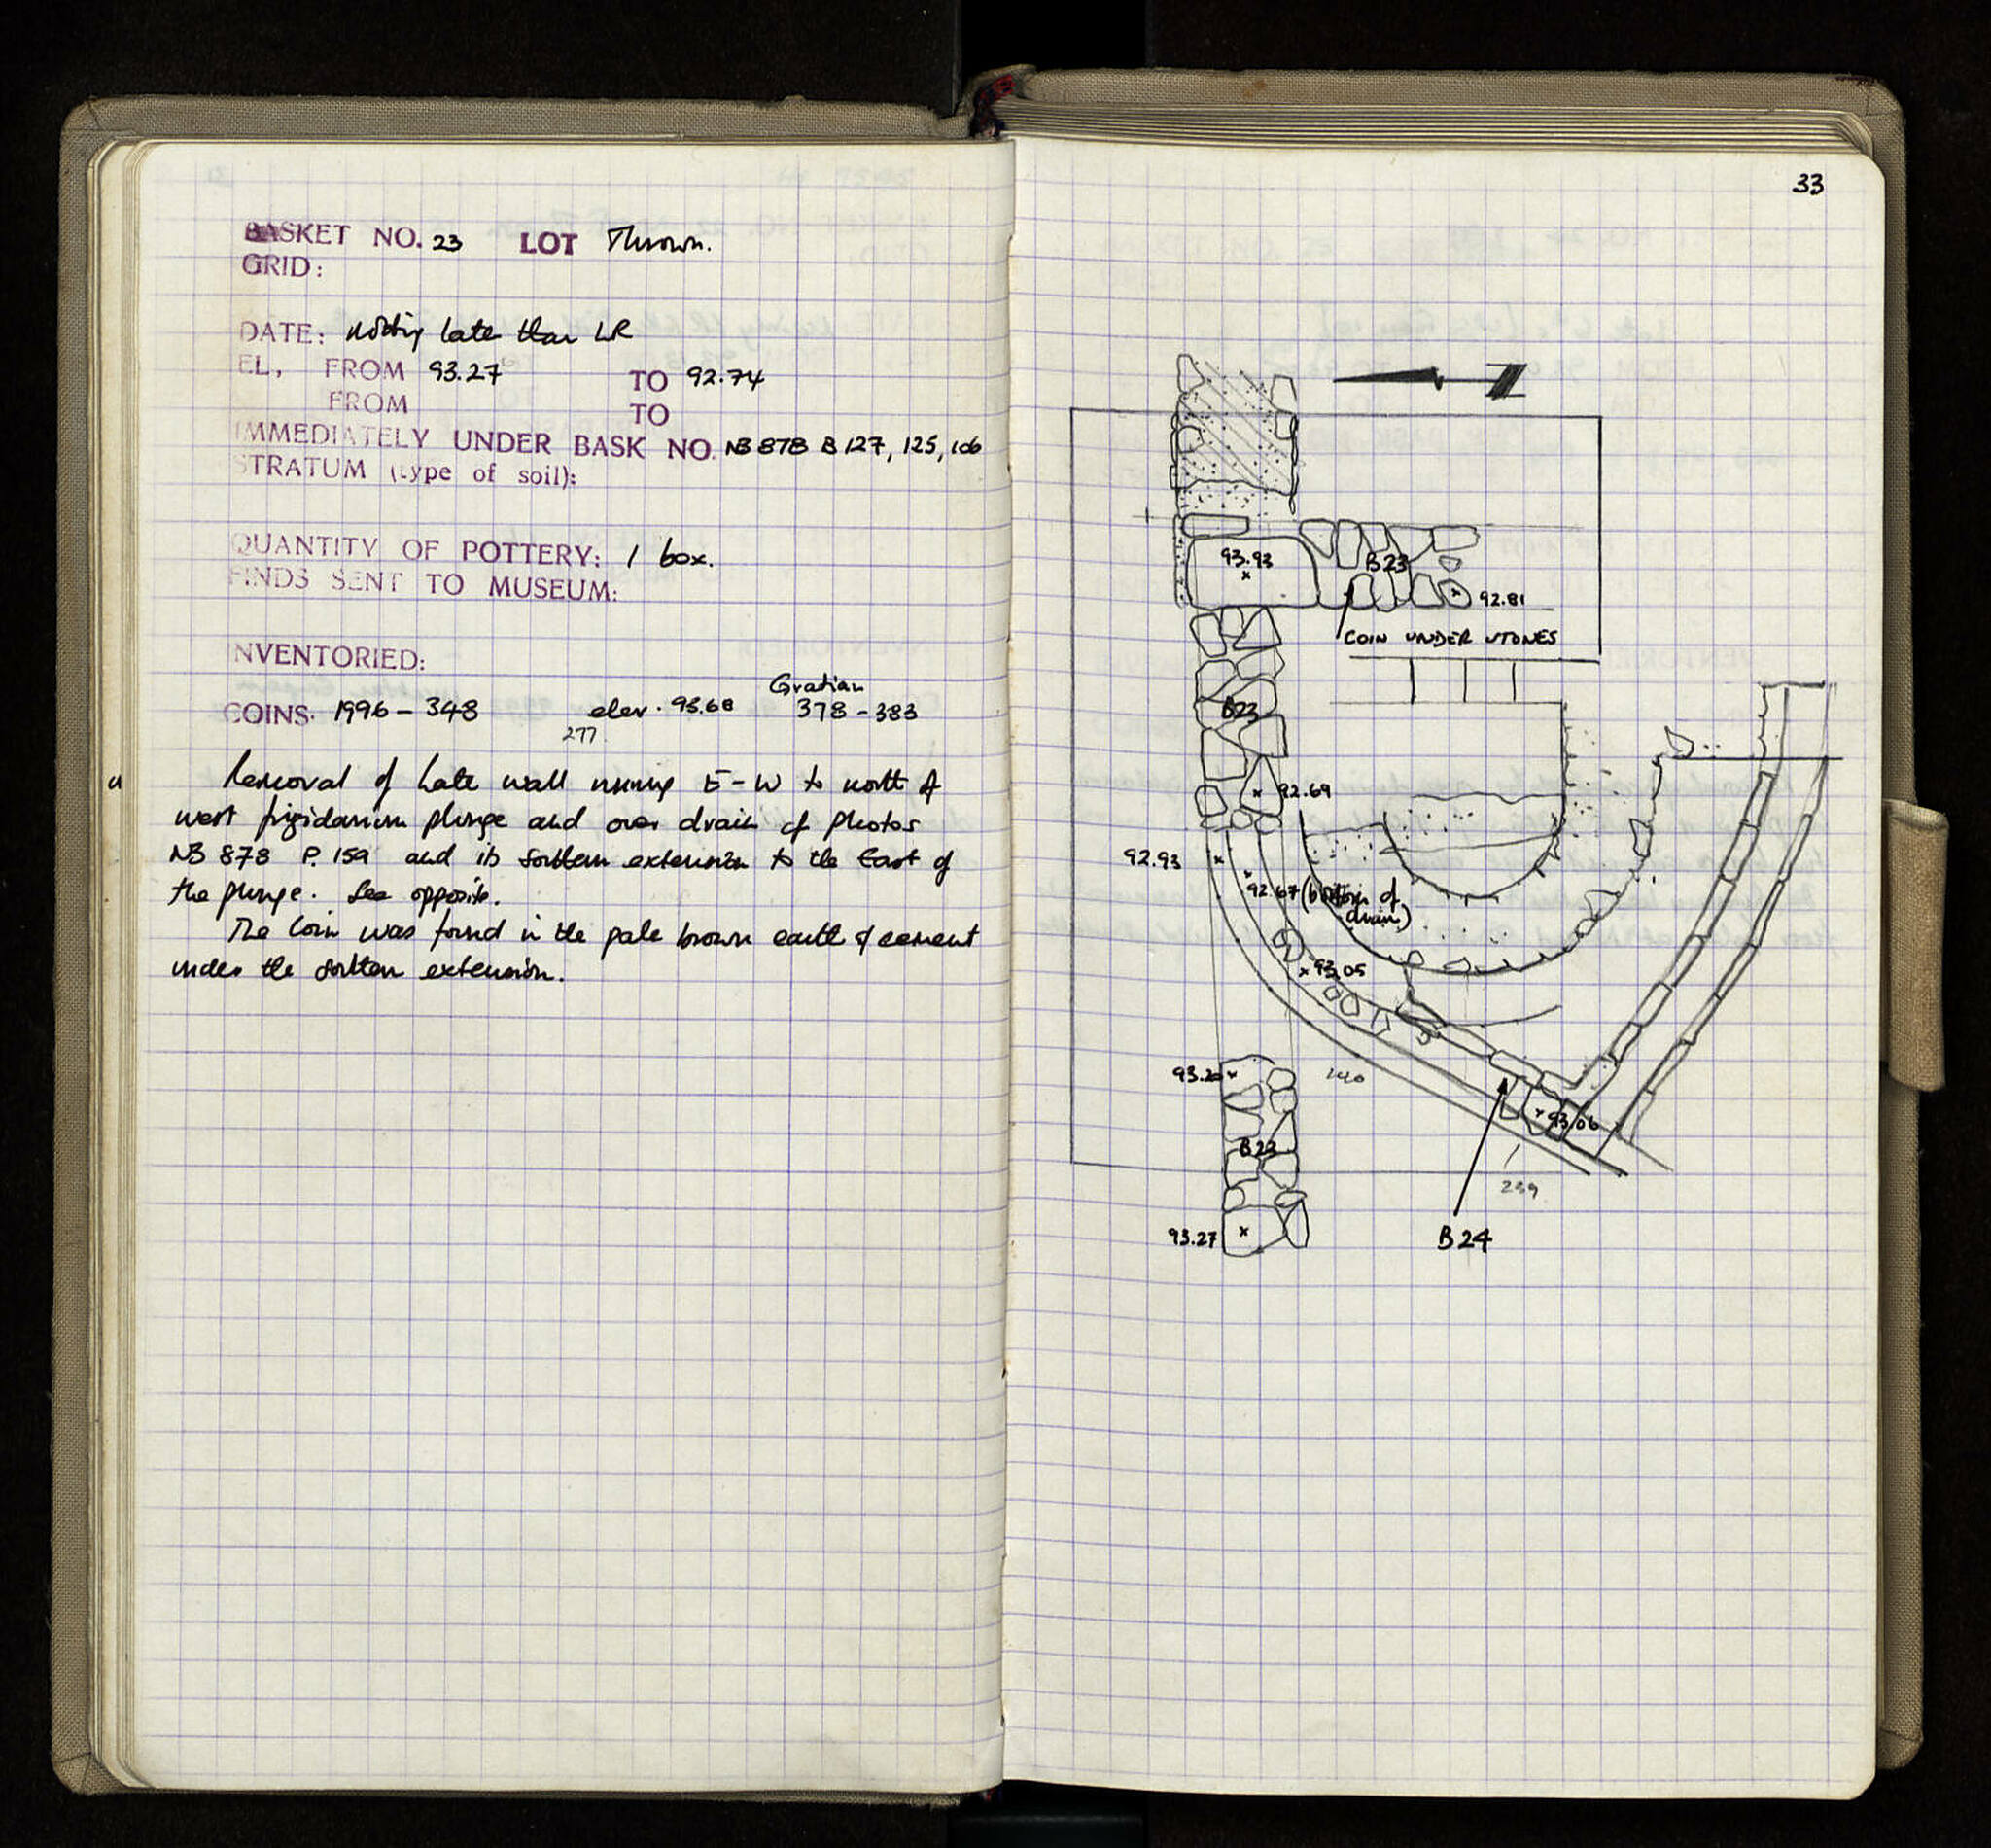 BASKET NO. 23 LOT Thrown.
GRID:
DATE: nothing late than LR
EL, FROM 93.27 TO 92.74
FROM TO
IMMEDIATELY UNDER BASK NO. NB 878 B 127, 125, 106
STRATUM (type of soil):
QUANTITY OF POTTERY: 1 box.
FINDS SENT TO MUSEUM:
INVENTORIED:
Gratian
COINS. 1996 - 348 elev. 93.68 378 - 383
277
Removal of Late wall running E-W to north of
west frigidarium plunge and over drain cf photos
NB 878 P. 159 and its southern extension to the East of
the plunge. See opposite.
The Coin was found in the pale brown earth & cement
under the southern extension.
33
93.93
B23
92.81
COIN UNDER STONES
B23
92.69
92.93
92.67 (bottom of
drain)
93.05
93.20
140
93.06
B23
239
93.27
B24